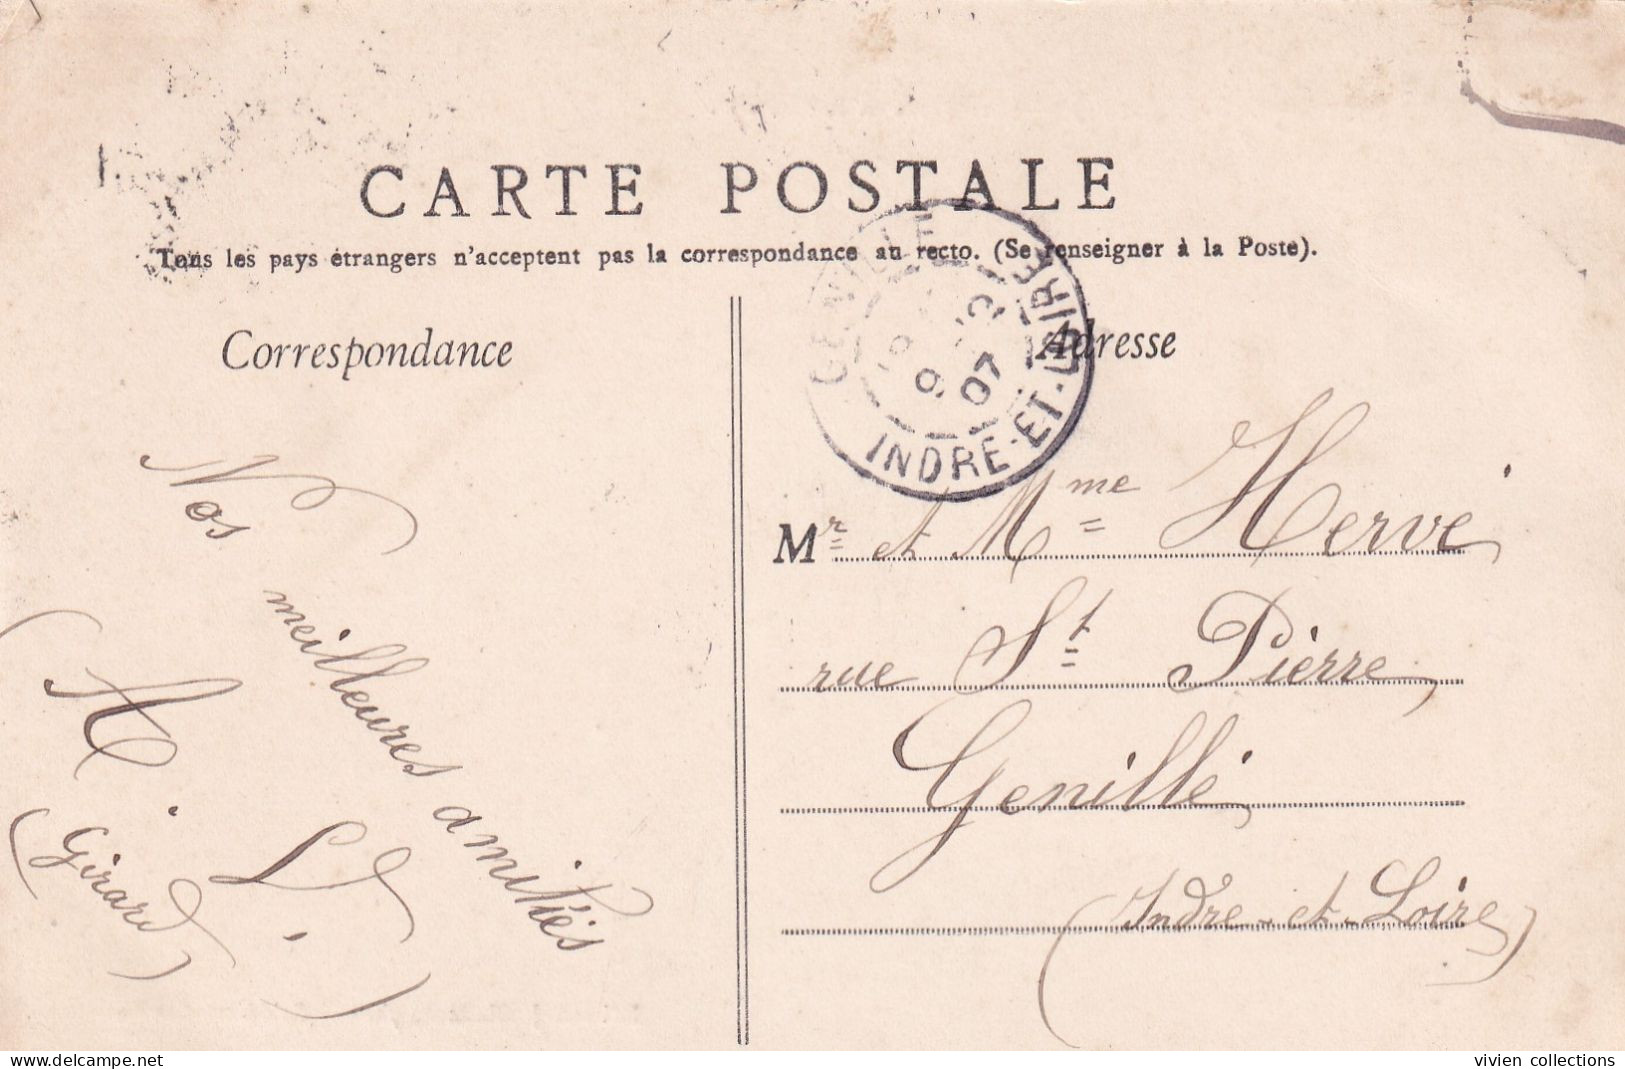 CARTE POSTALE
Tous les pays étrangers n'acceptent pas la correspondance au recto. (Se renseigner à la Poste).
Correspondance
Adresse
GENILLÉ
INDRE-ET-LOIRE
9
07
Nos meilleures amitiés
(A. L.)
(Girard)
Mr et Mme Hervé
rue St Pierre
Genillé
(Indre-et-Loire)
delcampe.net
vivien collections